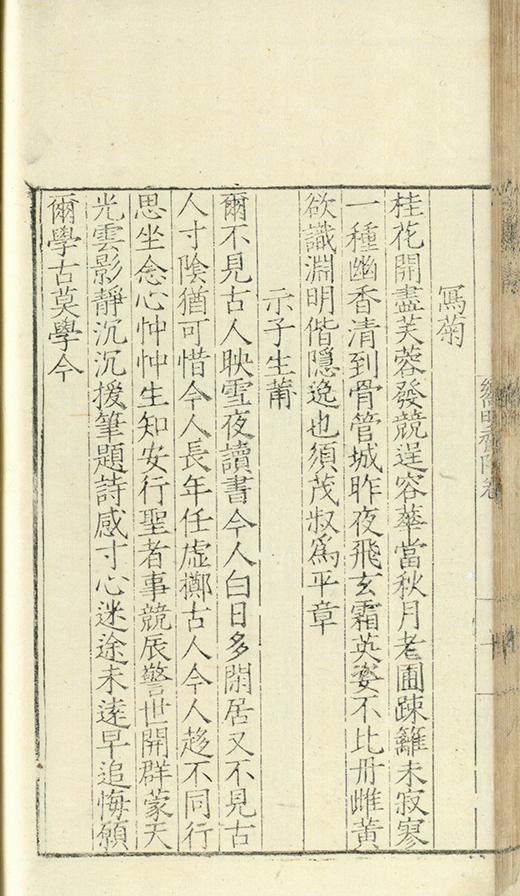 寫菊
桂花開盡芙蓉發競逞容華當秋月老圃踈籬未寂寥
一種幽香清到骨管城昨夜飛玄霜英姿不比丹雌黃
欲識淵明偕隱逸也須茂叔爲平章
示子生莆
爾不見古人映雪夜讀書今人白日多閑居又不見古
人寸陰猶可惜今人長年任虛擲古人今人趍不同行
思坐念心忡忡生知安行聖者事競辰警世開群蒙天
光雲影靜沉沉援筆題詩感寸心迷途未遠早追悔願
爾學古莫學今